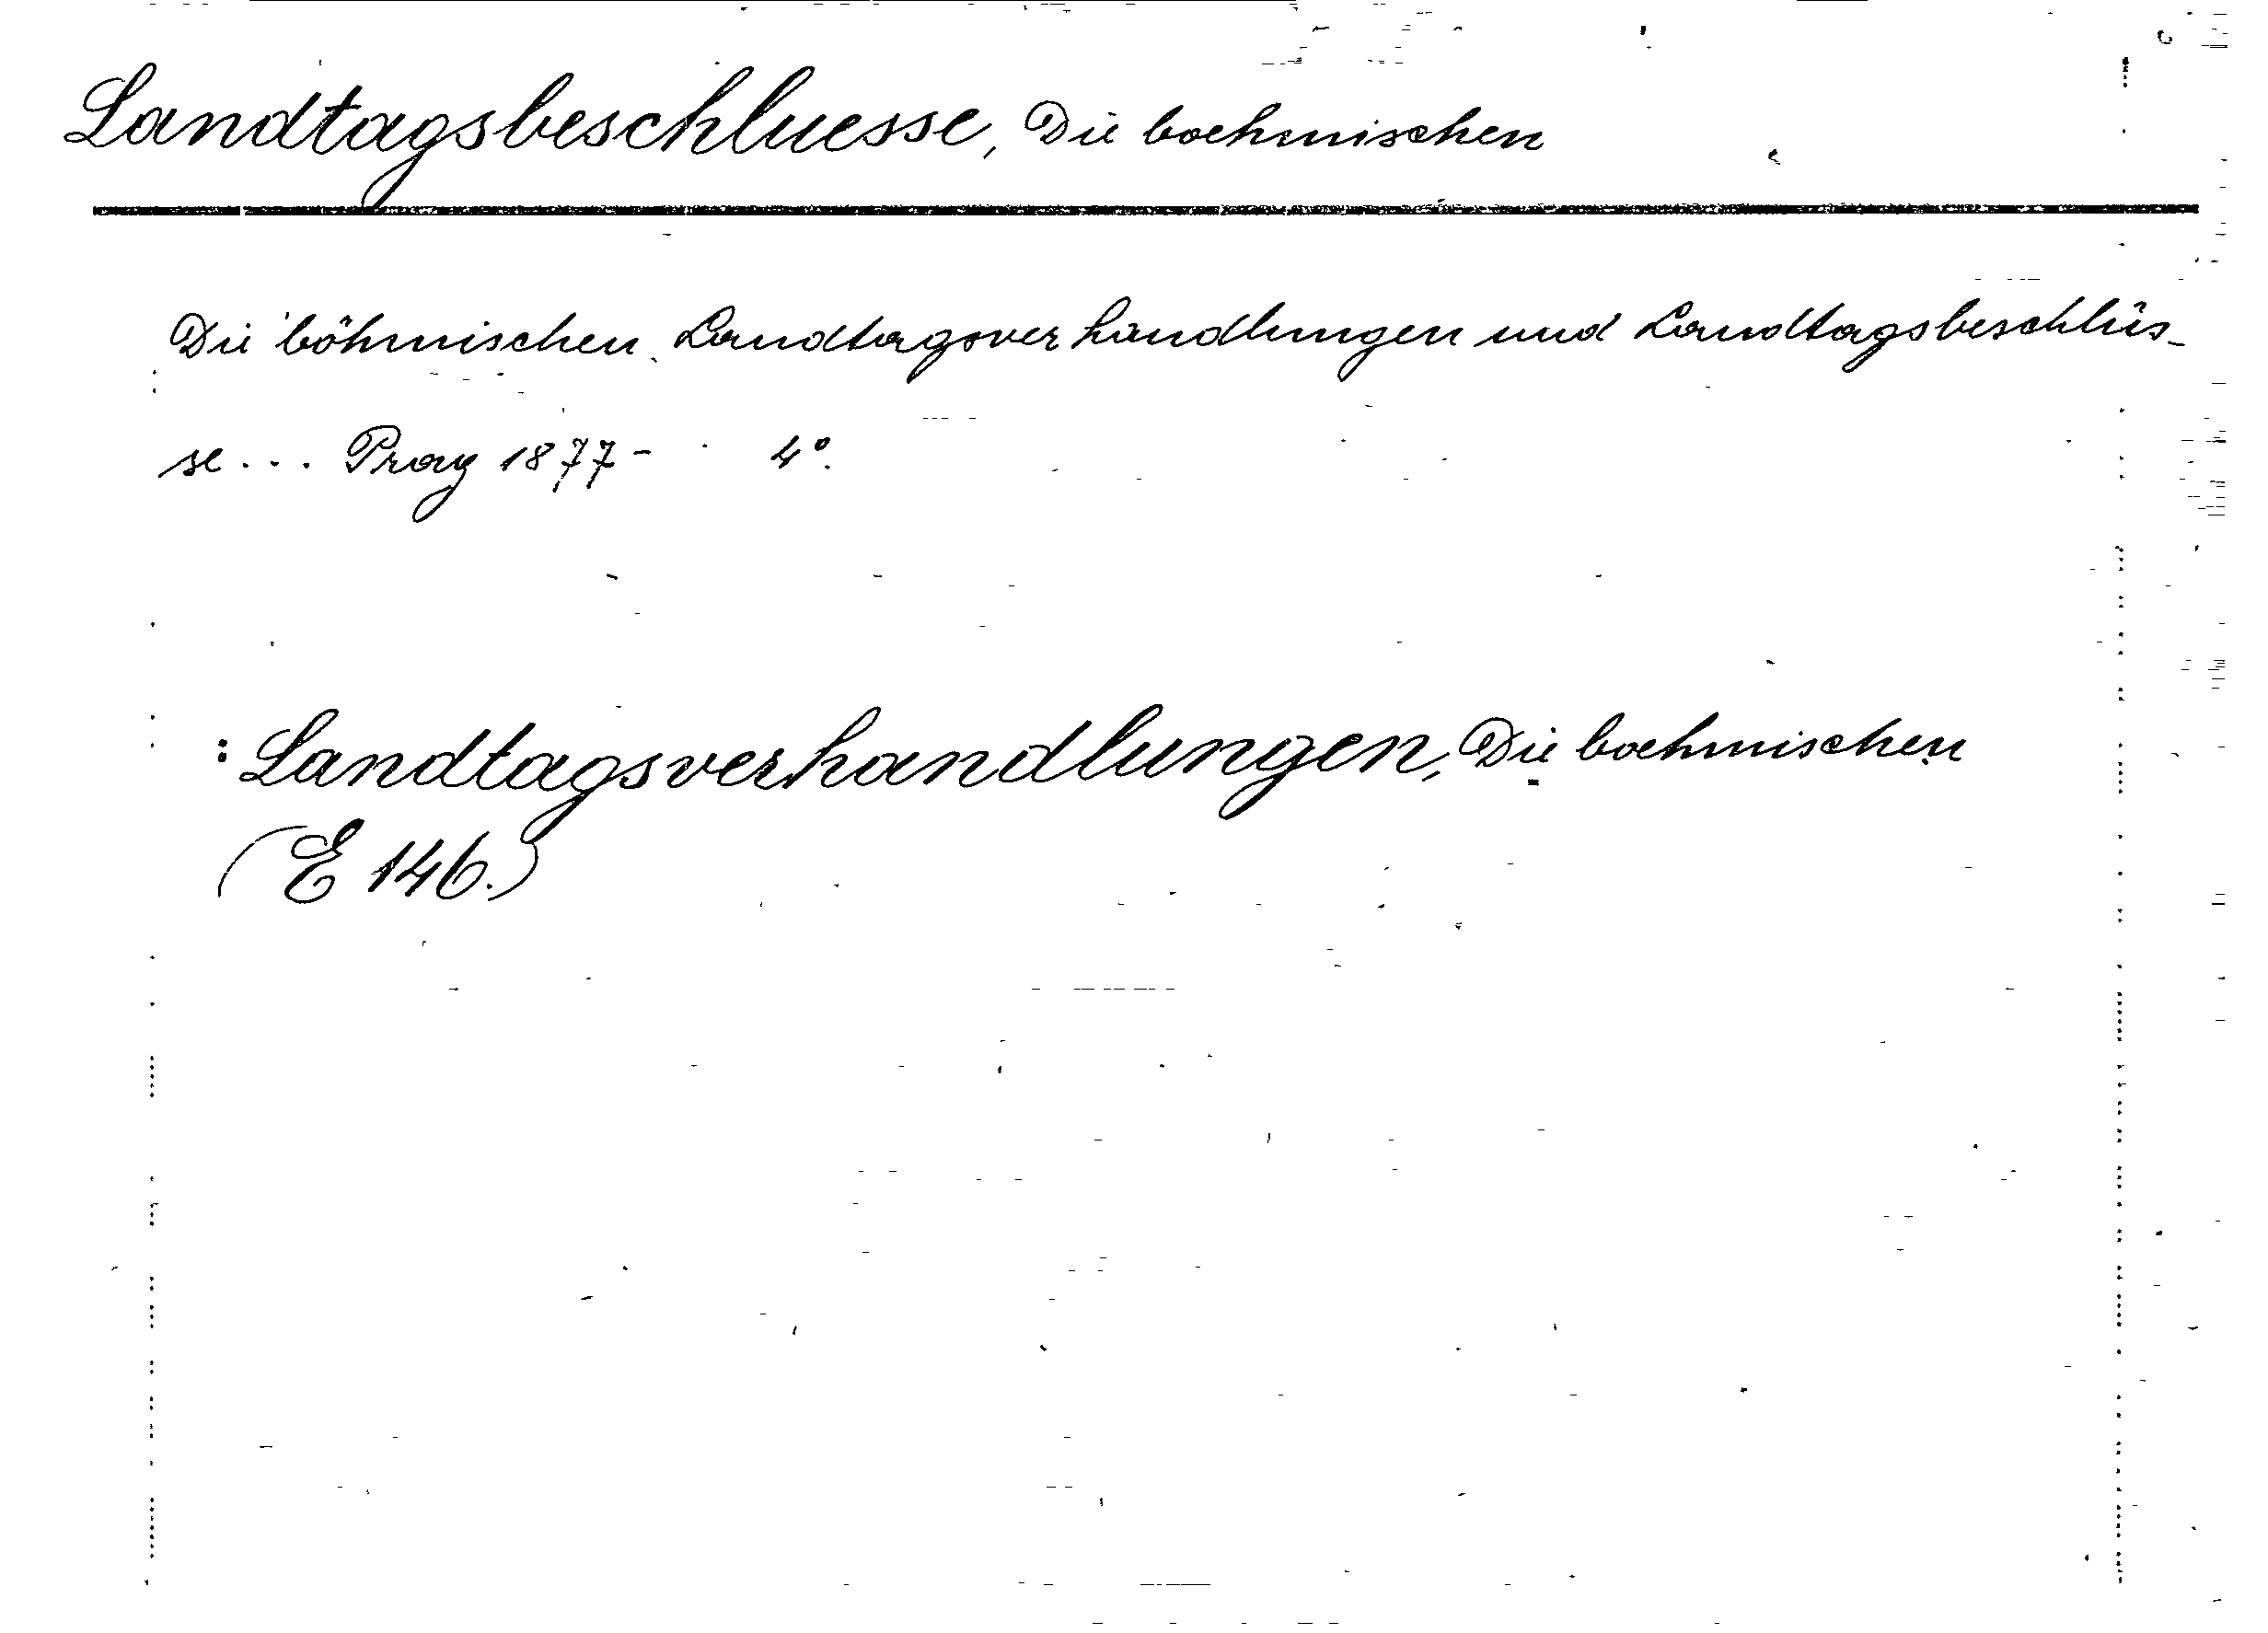 Landtagsbeschluesse, Die boehmischen
Die böhmischen Landtagsverhandlungen und Landtagsbeschlüs-
se... Prag 1877- 4°.
: Landtagsverhandlungen, Die boehmischen
(E 146.)